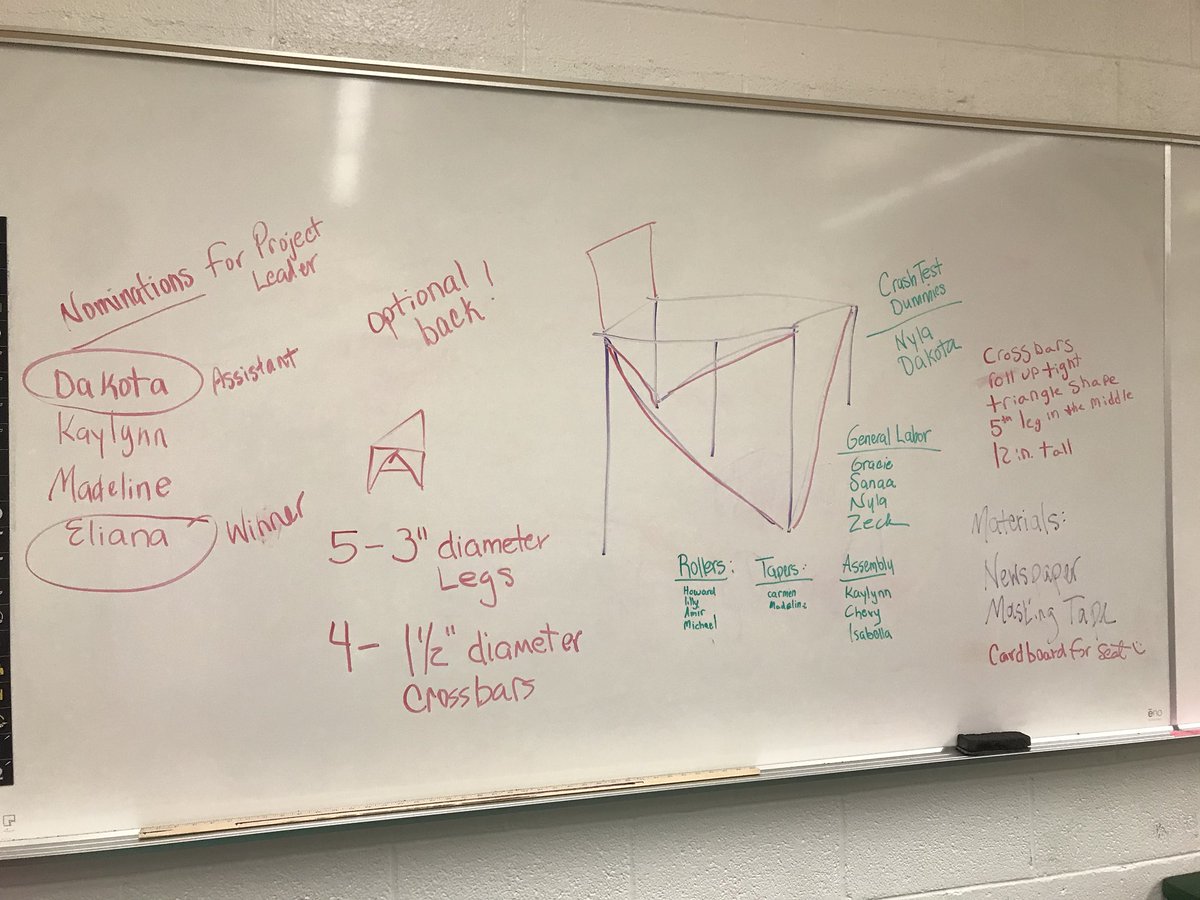 Nominations for Project
Leader
Dakota
Assistant
Kaylynn
Madeline
Eliana
Winner
optional!
back
5-3" diameter
Legs
4- 1½" diameter
Crossbars
Crash Test
Dummies
Nyla
Dakota
General Labor
Gracie
Sanaa
Nyla
Zeck
Rollers:
Howard
lilly
Amir
Michael
Tapers:
carmen
Madeline
Assembly
Kaylynn
Chevy
Isabella
Crossbars
roll up tight
triangle shape
5th leg in the middle
12 in. tall
Materials:
Newspaper
Masking Tape
Cardboard for seat
eno